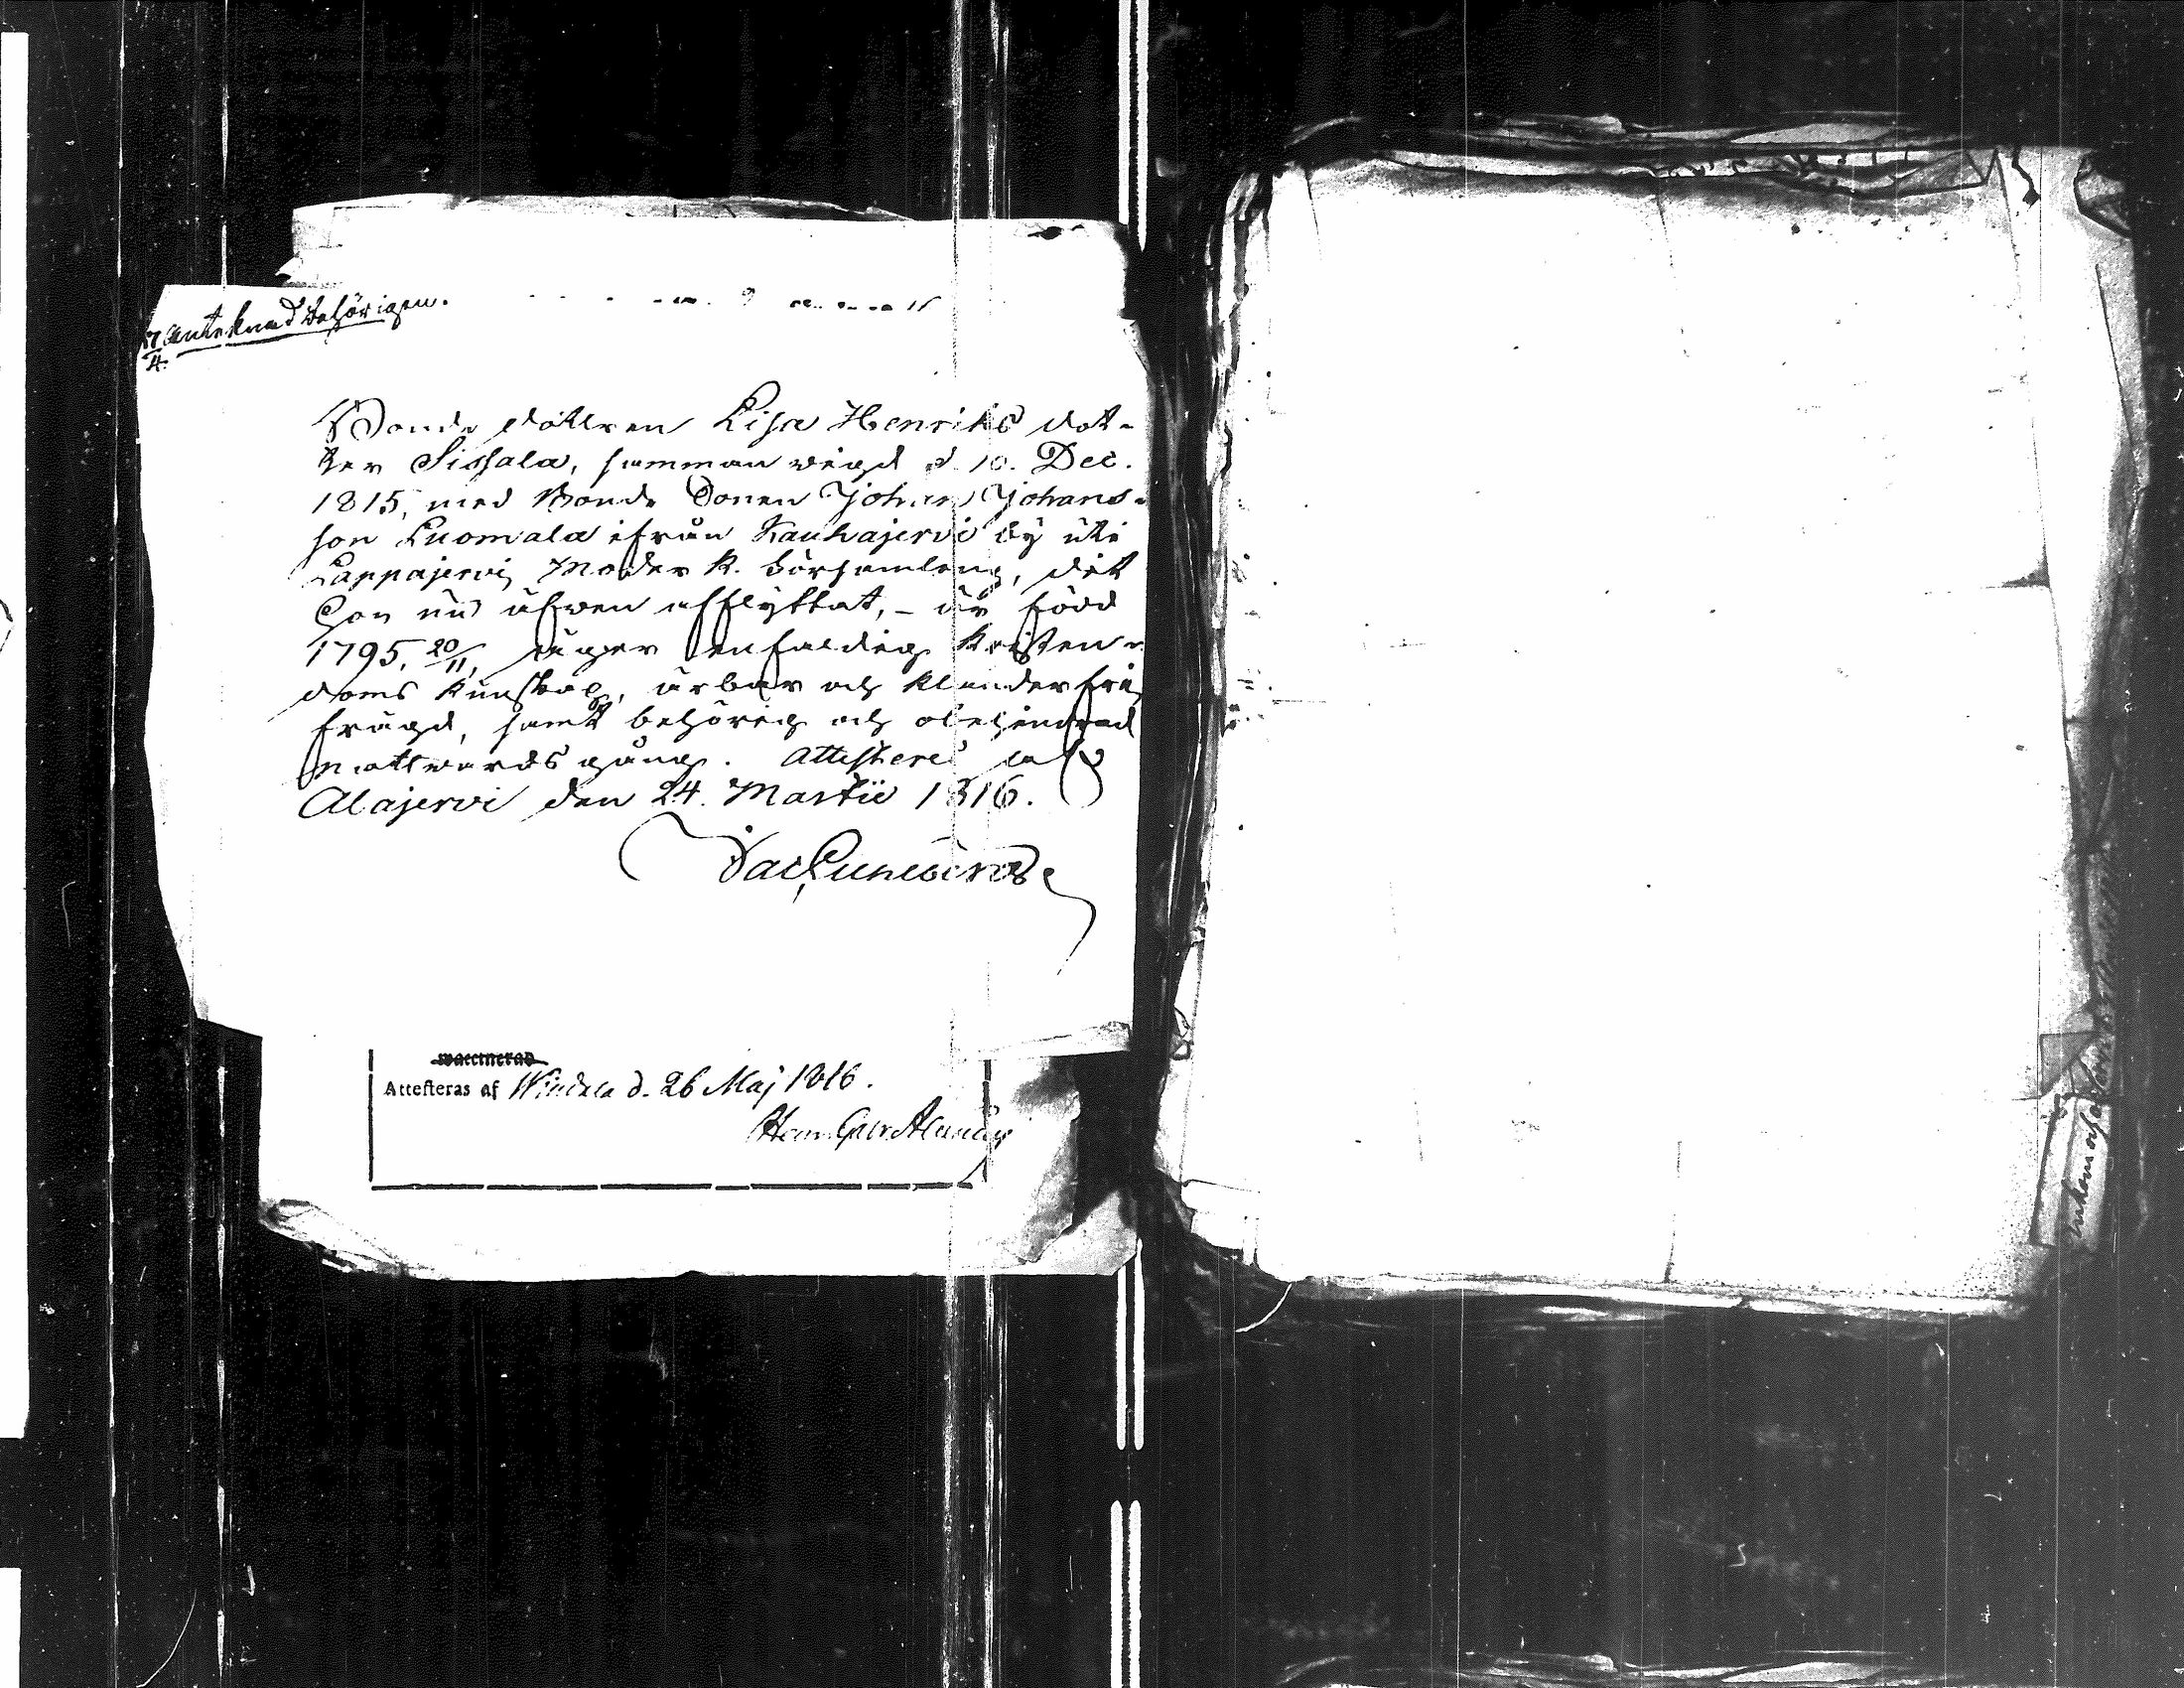 17/4. Anteknad behörigen.
Bonde dottren Lisa Henriks dot-
ter Sissala, samman wigd d. 10. Dec.
1815, med Bonde Sonen Johan Johans-
son Luomala ifrån Kauhajervi by uti
Lappajervi Moder K. församling, dit
Hon nu äfwen afflyttat, – är född
1795, 20/11, äger enfaldig Kristen-
doms kunskap, ärbar och klanderfri
frägd, samt behörig och obehindrad
nattwards gång. Attesteres
Alajervi den 24. Martii 1816.
waccinerad
Attesteras af Windala d. 26 Maj 1816.